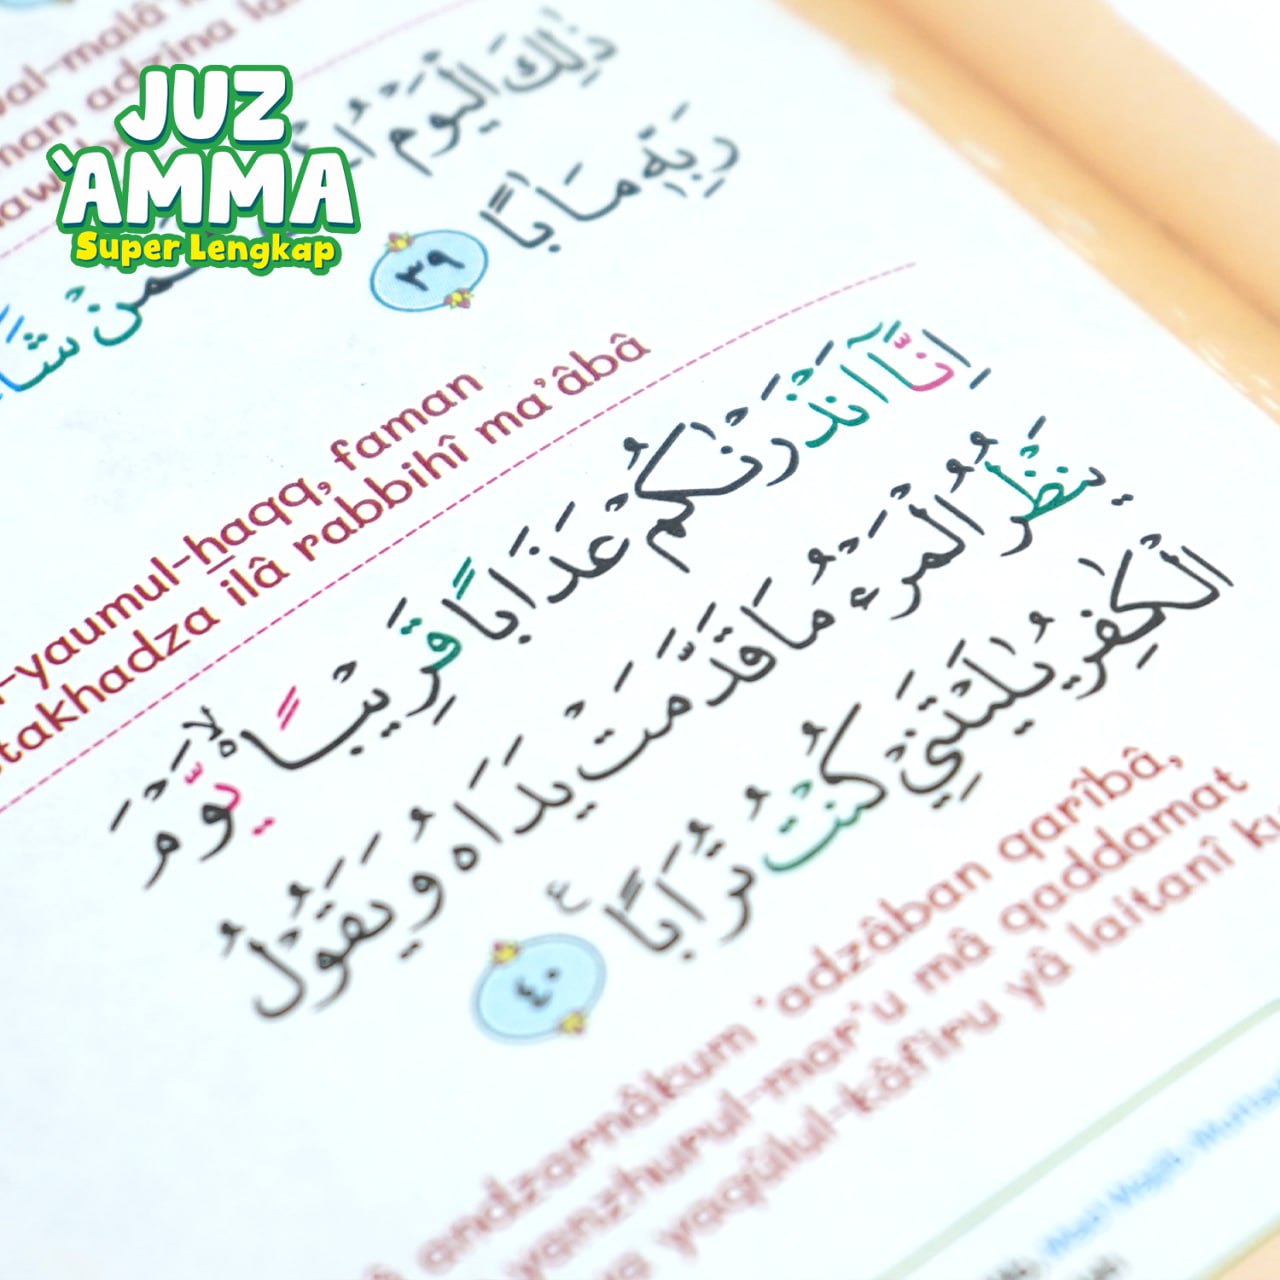 JUZ
'AMMA
Super Lengkap
wal-malâ
man adzina
ذٰلِكَ الْيَوْمُ
فَمَنْ شَاۤ
رَبِّهٖ مَاٰبًا ٣٩
l-yaumul-haqq, faman
takhadza ilâ rabbihî ma'âbâ
اِنَّآ اَنْذَرْنٰكُمْ عَذَابًا قَرِيْبًا ەۙ يَّوْمَ
يَنْظُرُ الْمَرْءُ مَا قَدَّمَتْ يَدَاهُ وَيَقُوْلُ
الْكٰفِرُ يٰلَيْتَنِيْ كُنْتُ تُرَابًا ࣖ ٤٠
andzarnâkum 'adzâban qarîbâ,
yanzhurul-mar'u mâ qaddamat
yaqûlul-kâfiru yâ laitanî ku